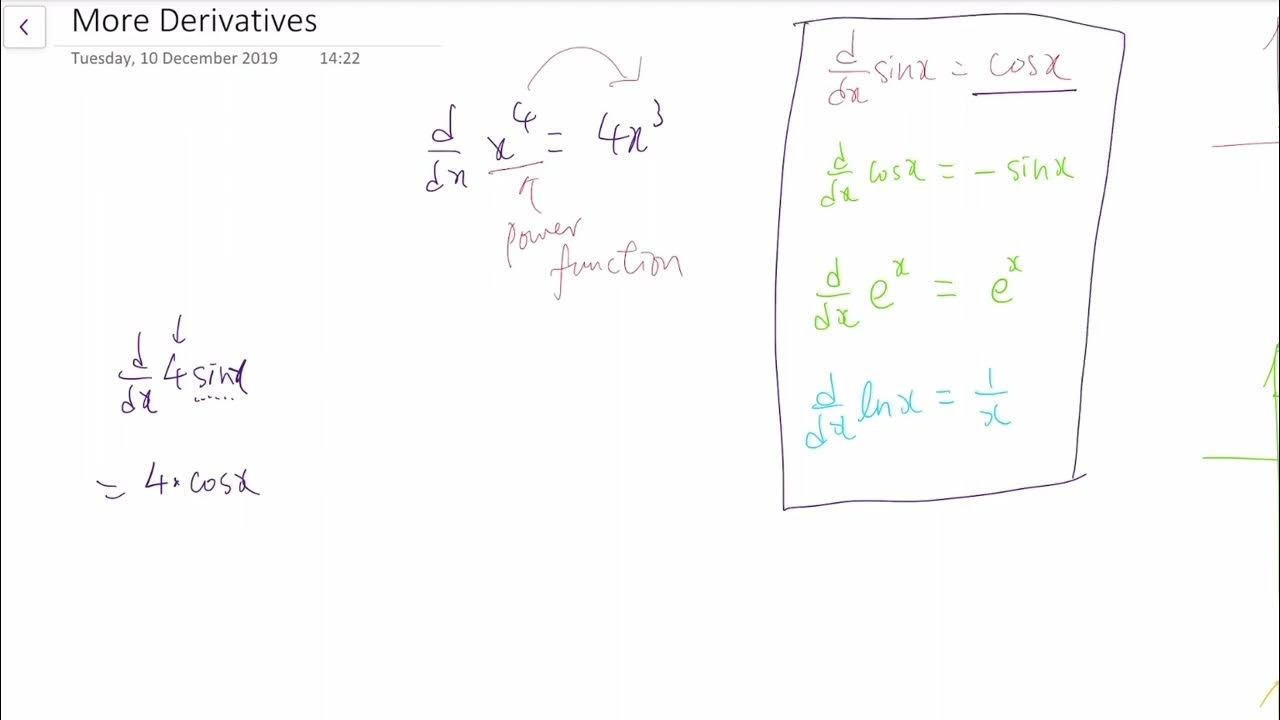 More Derivatives
Tuesday, 10 December 2019 14:22
d/dx x⁴ = 4x³
power
function
d/dx 4 sinx
= 4 · cosx
d/dx sinx = cosx
d/dx cosx = - sinx
d/dx eˣ = eˣ
d/dx lnx = 1/x